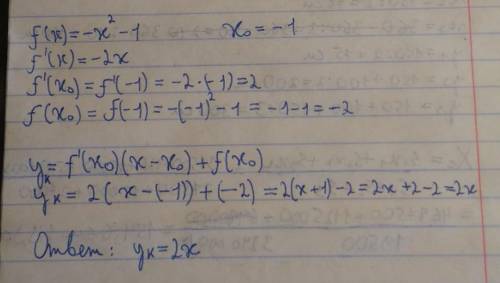 f(x)=-x²-1      x₀=-1
f'(x)=-2x
f'(x₀)=f'(-1)=-2·(-1)=2
f(x₀)=f(-1)=-(-1)²-1=-1-1=-2
yₖ=f'(x₀)(x-x₀)+f(x₀)
yₖ=2(x-(-1))+(-2)=2(x+1)-2=2x+2-2=2x
Ответ: yₖ=2x